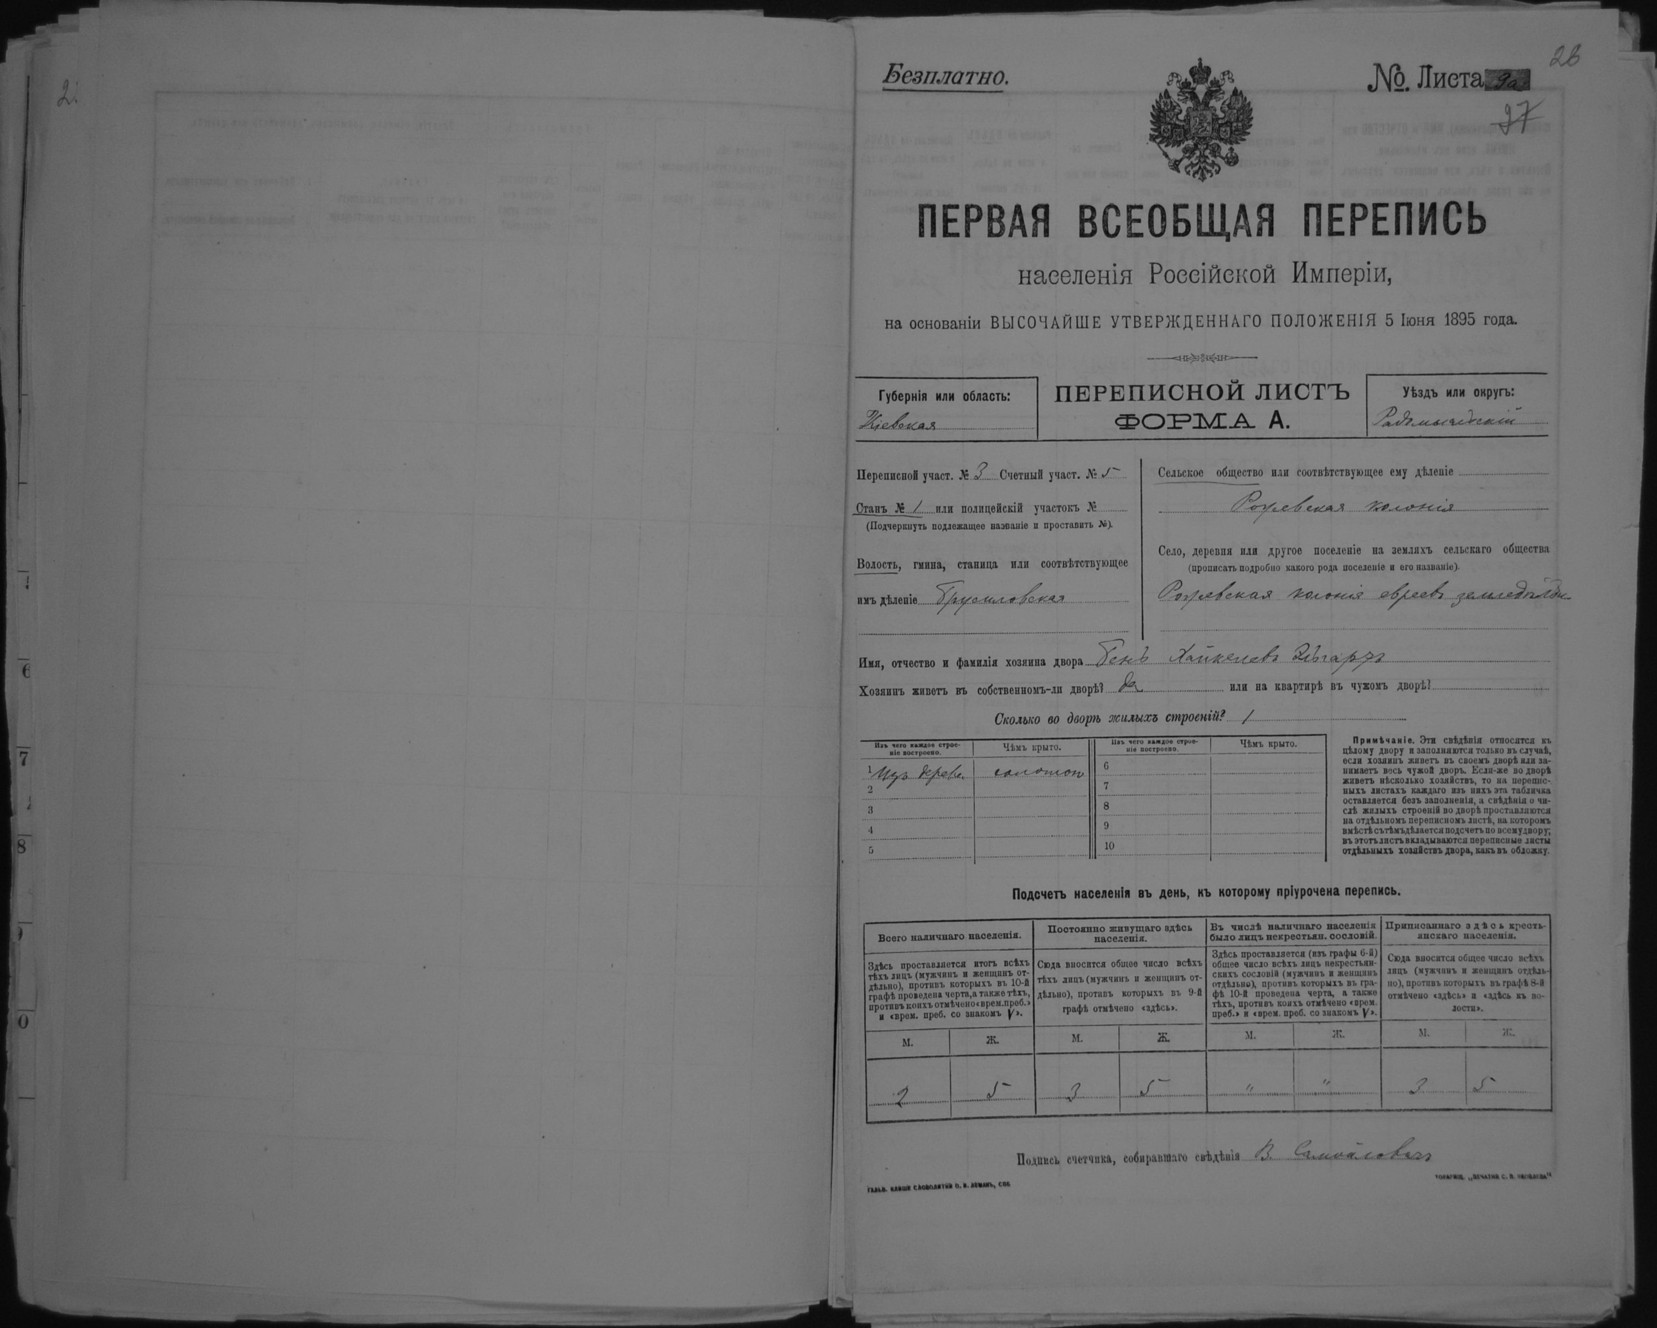 Безплатно.
№. Листа 9а
28
27
ПЕРВАЯ ВСЕОБЩАЯ ПЕРЕПИСЬ
населенія Россійской Имперіи,
на основаніи ВЫСОЧАЙШЕ УТВЕРЖДЕННАГО ПОЛОЖЕНІЯ 5 Іюня 1895 года.
Губернія или область:
Кіевская
ПЕРЕПИСНОЙ ЛИСТЪ
ФОРМА А.
Уѣздъ или округъ:
Радомысльскій
Переписной участ. № 3 Счетный участ. № 5
Станъ № 1 или полицейскій участокъ №
(Подчеркнуть подлежащее названіе и проставить №).
Волость, гмина, станица или соотвѣтствующее
имъ дѣленіе Брусиловская
Сельское общество или соотвѣтствующее ему дѣленіе
Рожевская колонія
Село, деревня или другое поселеніе на земляхъ сельскаго общества
(прописать подробно какого рода поселеніе и его названіе).
Рожевская колонія евреевъ
Имя, отчество и фамилія хозяина двора
Хозяинъ живетъ въ собственномъ-ли дворѣ? да или на квартирѣ въ чужомъ дворѣ?
Сколько во дворѣ жилыхъ строеній? 1
Изъ чего каждое строе-
ніе построено.
Чѣмъ крыто.
Изъ чего каждое строе-
ніе построено.
Чѣмъ крыто.
1 Изъ дерева соломою
2
3
4
5
6
7
8
9
10
Примѣчаніе. Эти свѣдѣнія относятся къ
цѣлому двору и заполняются только въ случаѣ,
если хозяинъ живетъ въ своемъ дворѣ или за-
нимаетъ весь чужой дворъ. Если-же во дворѣ
живетъ нѣсколько хозяйствъ, то на перепис-
ныхъ листахъ каждаго изъ нихъ эта табличка
оставляется безъ заполненія, а свѣдѣнія о чи-
слѣ жилыхъ строеній во дворѣ проставляются
на отдѣльномъ переписномъ листѣ, на которомъ
вмѣстѣ съ тѣмъ дѣлается подсчетъ по всему двору;
въ этотъ листъ вкладываются переписные листы
отдѣльныхъ хозяйствъ двора, какъ въ обложку.
Подсчетъ населенія въ день, къ которому пріурочена перепись.
Всего наличнаго населенія.
Здѣсь проставляется итогъ всѣхъ
тѣхъ лицъ (мужчинъ и женщинъ от-
дѣльно), противъ которыхъ въ 10-й
графѣ проведена черта, а также тѣхъ,
противъ коихъ отмѣчено «врем. преб.»
и «врем. преб. со знакомъ V».
Постоянно живущаго здѣсь
населенія.
Сюда вносится общее число всѣхъ
тѣхъ лицъ (мужчинъ и женщинъ от-
дѣльно), противъ которыхъ въ 9-й
графѣ отмѣчено «здѣсь».
Въ числѣ наличнаго населенія
было лицъ некрестьян. сословій.
Здѣсь проставляется (изъ графы 6-й)
общее число всѣхъ лицъ некрестьян-
скихъ сословій (мужчинъ и женщинъ
отдѣльно), противъ которыхъ въ гра-
фѣ 10-й проведена черта, а также
тѣхъ, противъ коихъ отмѣчено «врем.
преб.» и «врем. преб. со знакомъ V».
Приписаннаго здѣсь кресть-
янскаго населенія.
Сюда вносится общее число всѣхъ
лицъ (мужчинъ и женщинъ отдѣль-
но), противъ которыхъ въ графѣ 8-й
отмѣчено «здѣсь» и «здѣсь въ во-
лости».
М. Ж. М. Ж. М. Ж. М. Ж.
2 5 3 5 " " 3 5
Подпись счетчика, собиравшаго свѣдѣнія В. Самойловичъ